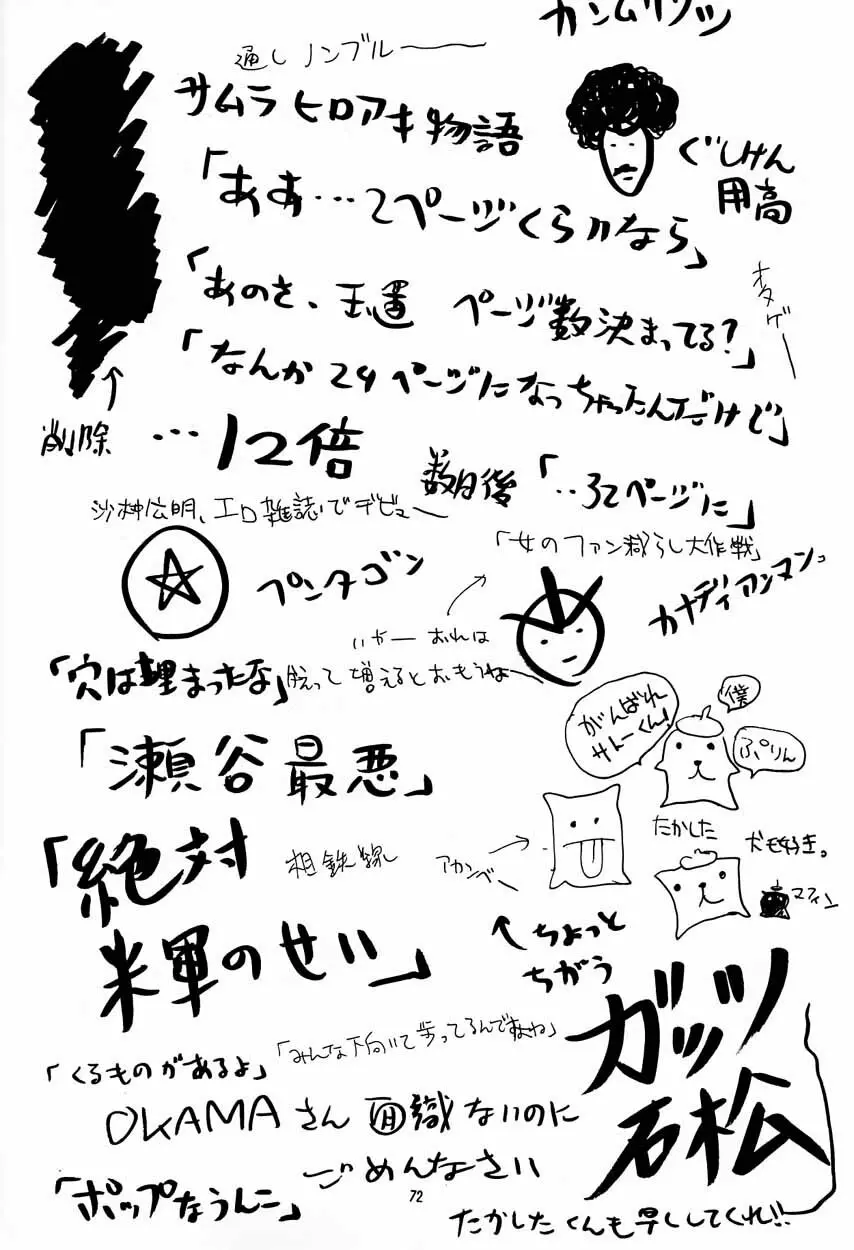 カンムリワシ
通しノンブルー
サムラヒロアキ物語
ぐしけん
用高
「ああ…2ページくらいなら」
「あのさ、玉置 ページ数決まってる?」
オタゲー
「なんか24ページになっちゃったんだけど」
削除
…12倍
数日後「‥32ページに」
沙村広明、エロ雑誌でデビュー
「女のファン減らし大作戦」
ペンタゴン
カナディアンマン。
いやー おれは
「穴は埋まったな」
脱って増えるとおもうねー
がんばれ
サトーくん!
僕
ぷりん
「瀬谷最悪」
たかした
犬も好き。
アカンベー
マフィン
「絶対
相鉄線
米軍のせい」
←ちょっと
ちがう
ガッツ
石松
「みんな下向いて歩ってるんですよね」
「くるものがあるよ」
OKAMAさん 面識ないのに
ごめんなさい
「ポップなうんこ」
72
たかしたくんも早くしてくれ!!